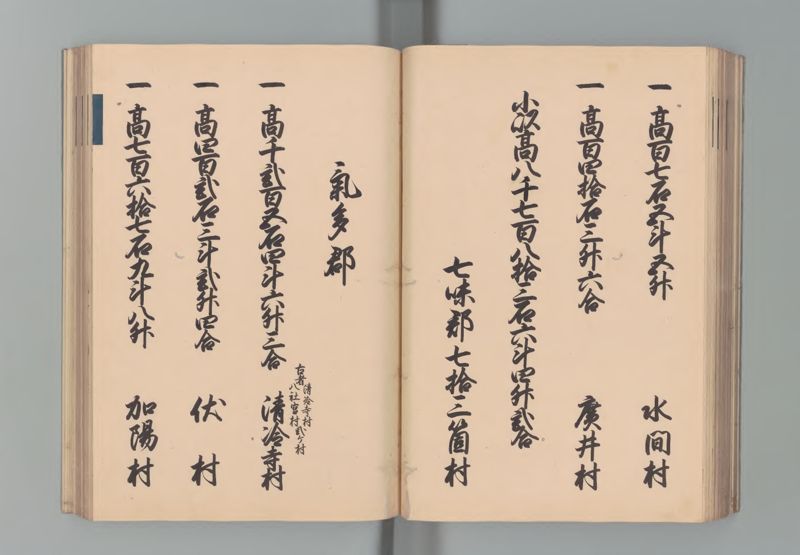 一 高百七石五斗五升 水間村
一 高百四拾石三升六合 廣井村
小以高八千七百八拾三石六斗四升貳合
七味郡七拾三箇村
氣多郡
古者 清冷寺村 八社宮村 貳ケ村
一 高千貳百五石四斗六升三合 清冷寺村
一 高四百貳石三斗貳升四合 伏村
一 高七百六拾七石九斗八升 加陽村